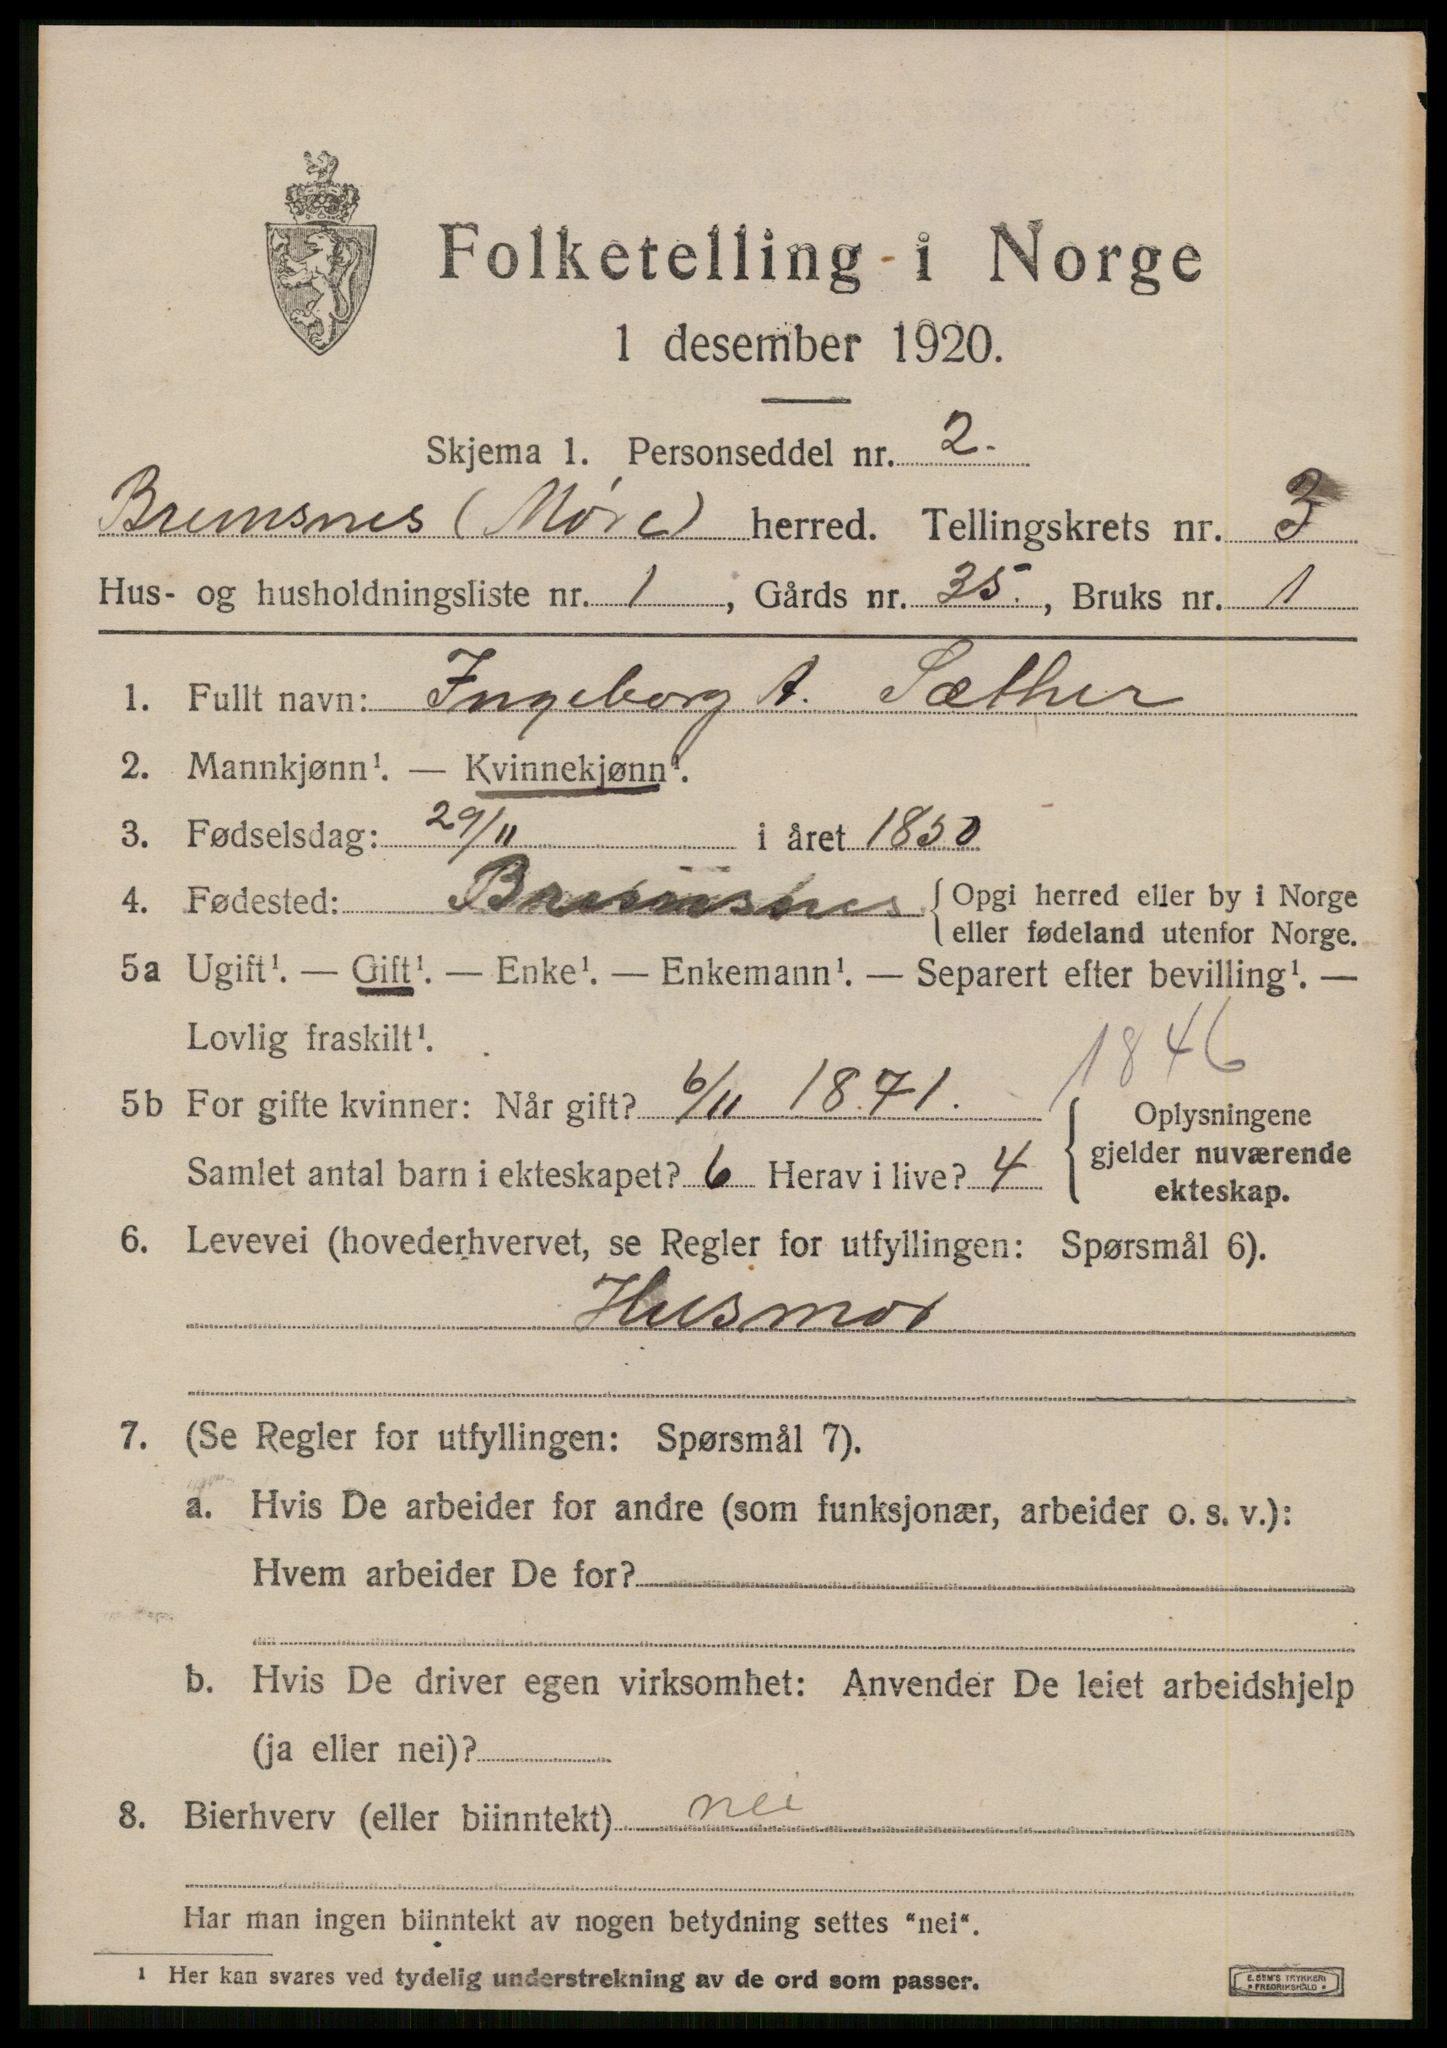 Folketelling i Norge
1 desember 1920.
Skjema 1. Personseddel nr. 2.
Bremsnes (Møre) herred. Tellingskrets nr. 3
Hus- og husholdningsliste nr. 1, Gårds nr. 35., Bruks nr. 1
1. Fullt navn: Ingeborg A. Sæther
2. Mannkjønn¹. — Kvinnekjønn¹.
3. Fødselsdag: 29/11 i året 1850
4. Fødested: Bremsnes { Opgi herred eller by i Norge
eller fødeland utenfor Norge.
5a Ugift¹. — Gift¹. — Enke¹. — Enkemann¹. — Separert efter bevilling¹. —
Lovlig fraskilt¹.
1846
5b For gifte kvinner: Når gift? 6/11 1871.
Samlet antal barn i ekteskapet? 6 Herav i live? 4
{ Oplysningene
gjelder nuværende
ekteskap.
6. Levevei (hovederhvervet, se Regler for utfyllingen: Spørsmål 6).
Husmor
7. (Se Regler for utfyllingen: Spørsmål 7).
a. Hvis De arbeider for andre (som funksjonær, arbeider o. s. v.):
Hvem arbeider De for?
b. Hvis De driver egen virksomhet: Anvender De leiet arbeidshjelp
(ja eller nei)?
8. Bierhverv (eller biinntekt) nei
Har man ingen biinntekt av nogen betydning settes “nei“.
¹ Her kan svares ved tydelig understrekning av de ord som passer.
E. SEM'S TRYKKERI
• FREDRIKSHALD •